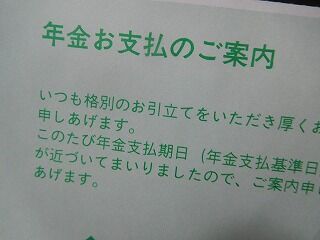 年金お支払のご案内
いつも格別のお引立てをいただき厚くお
申しあげます。
このたび年金支払期日（年金支払基準日
が近づいてまいりましたので、ご案内申し
あげます。